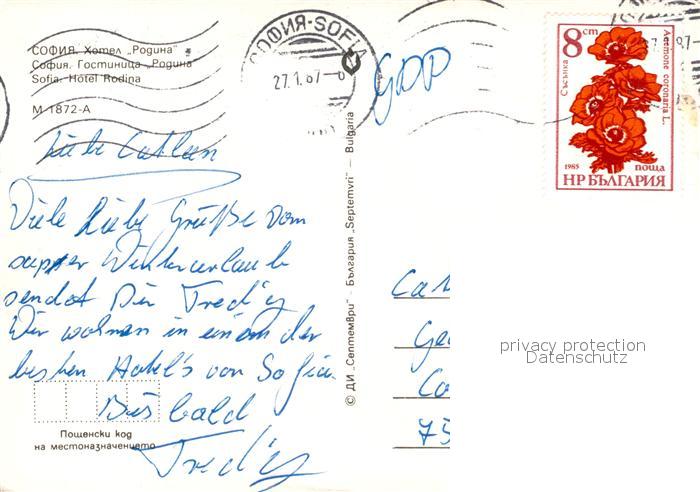 СОФИЯ. Хотел „Родина“
София. Гостиница „Родина“
Sofia. Hotel Rodina
М 1872-А
СОФИЯ-SOFIA
27.1.87-
GDP
8 cm
Anemone coronaria L.
Съсънка
1985 поща
НР БЪЛГАРИЯ
Liebe Cathleen
Viele liebe Grüße vom
super Winterurlaub
sendet Dir Fred'y
Wir wohnen in einem der
besten Hotel's von Sofia.
Bis bald
Fred'y
Пощенски код
на местоназначението
© ДИ „Септември“ - България „Septemvri“ — Bulgaria
Ca
Ge
Co
75
privacy protection
Datenschutz